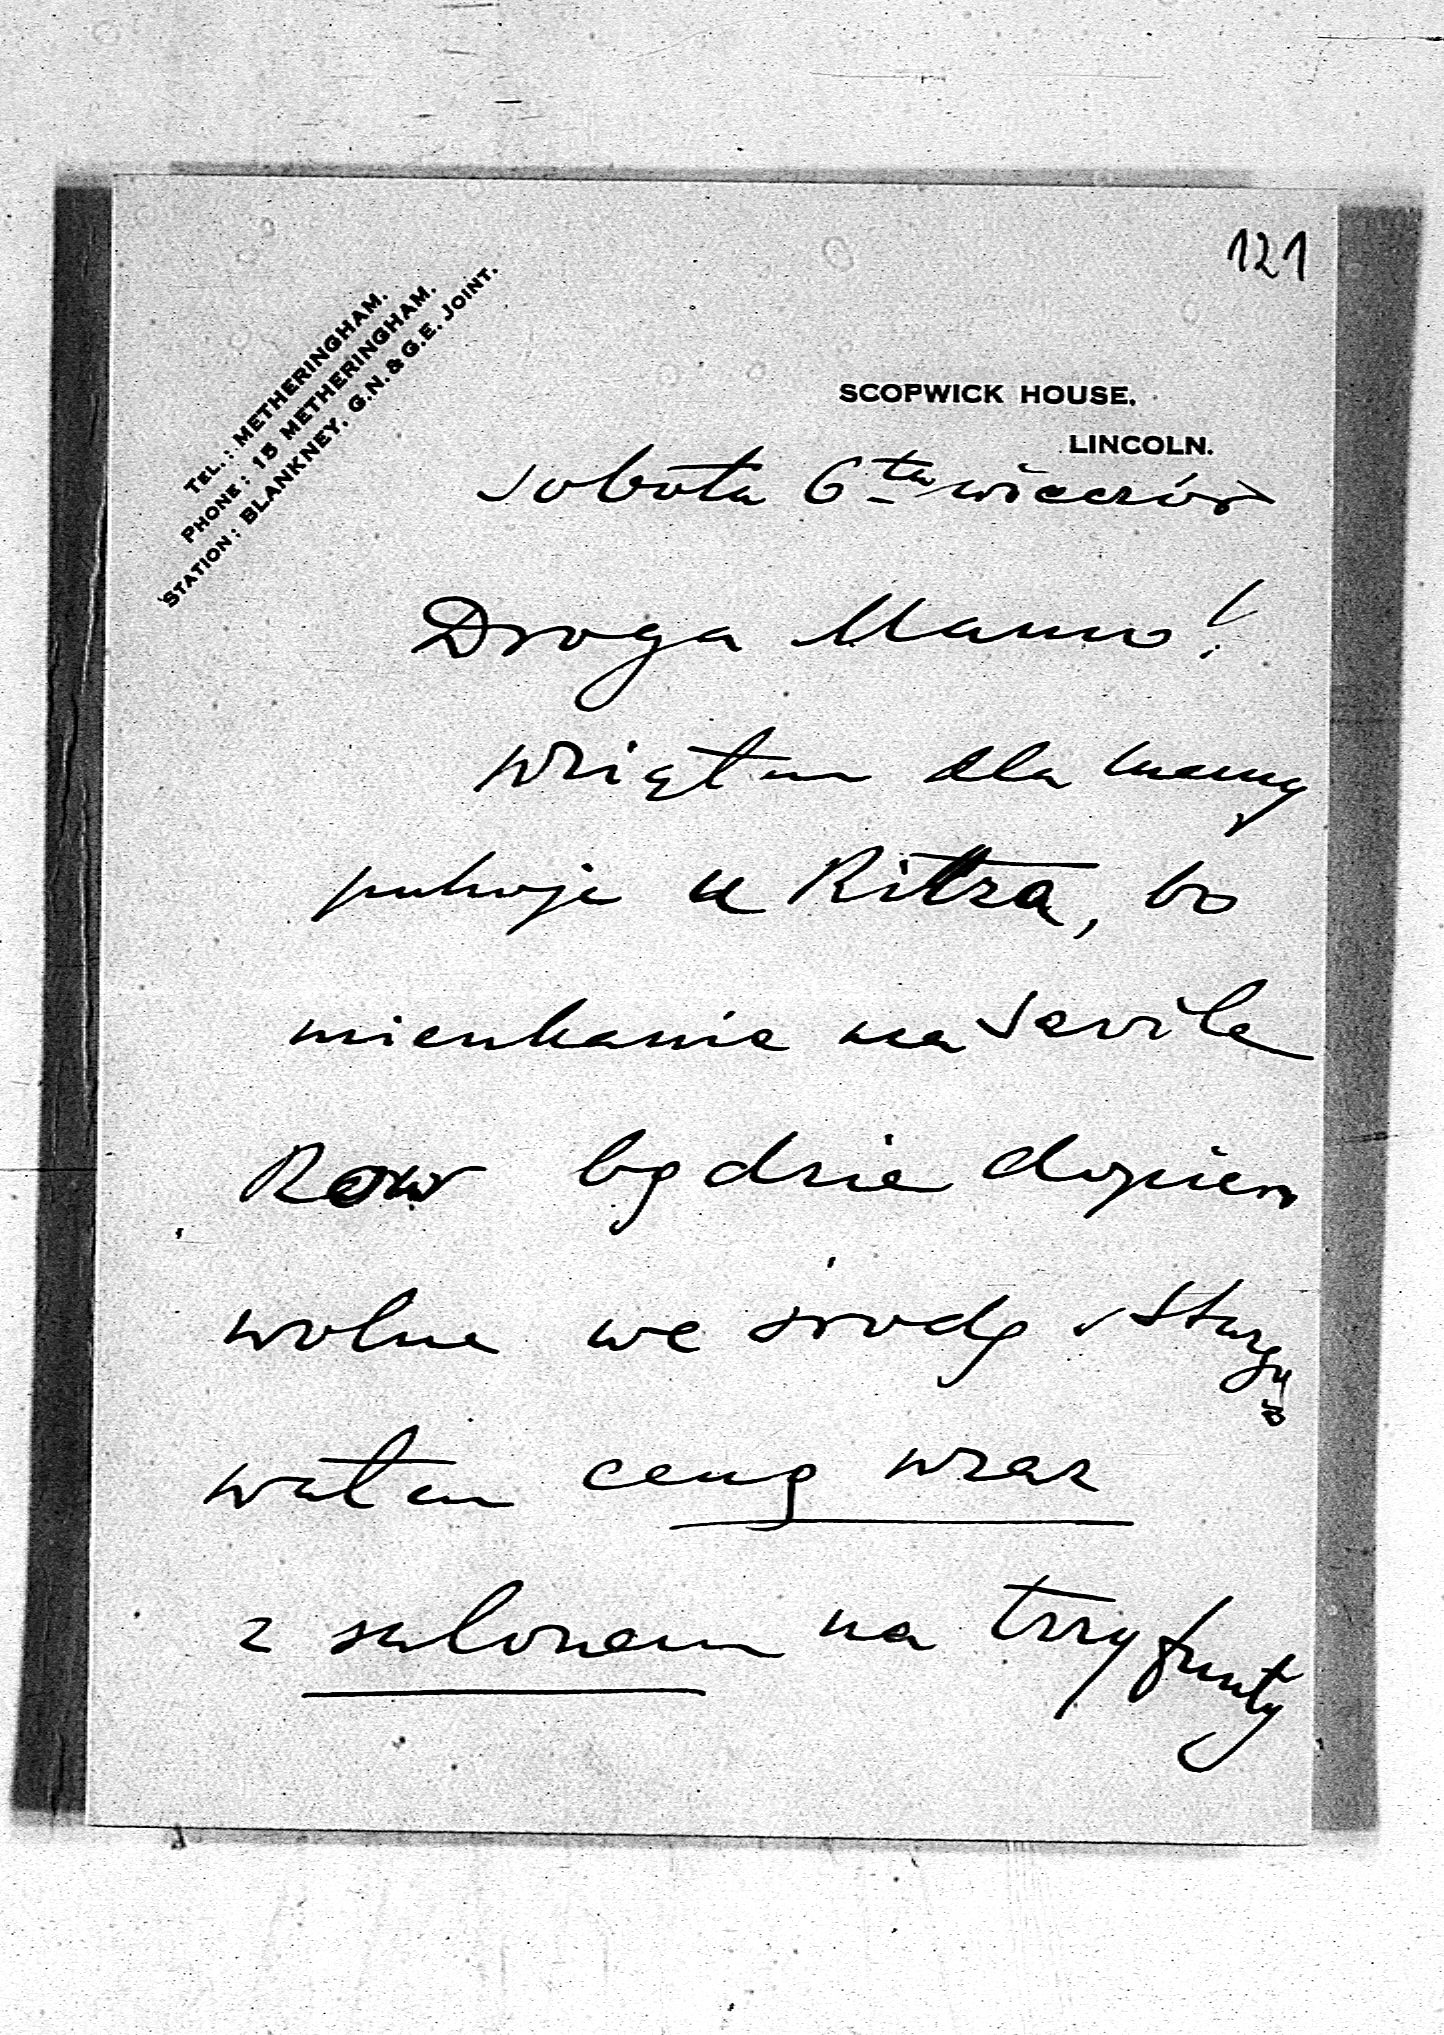 121
TEL.: METHERINGHAM.
PHONE: 15 METHERINGHAM.
STATION: BLANKNEY, G.N. & G.E. JOINT.
SCOPWICK HOUSE,
LINCOLN.
sobota 6ta wieczór
Droga Mamo!
Wziąłem dla Mamy
pokoje u Ritza, bo
mieszkanie na Savile
Row będzie dopiero
wolne we środę. Stargo
wałem cenę wraz
z salonem na trzy funty